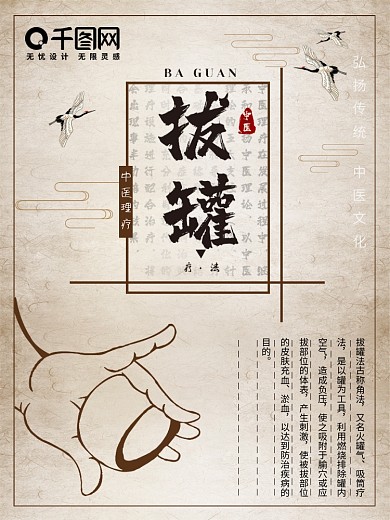 千图网
无忧设计 无限灵感
BA GUAN
拔罐
中医
中医理疗
疗·法
弘扬传统 中医文化
拔罐法古称角法，又名火罐气、吸筒疗
法，是以罐为工具，利用燃烧排除罐内
空气，造成负压，使之吸附于腧穴或应
拔部位的体表，产生刺激，使被拔部位
的皮肤充血、淤血，以达到防治疾病的
目的。